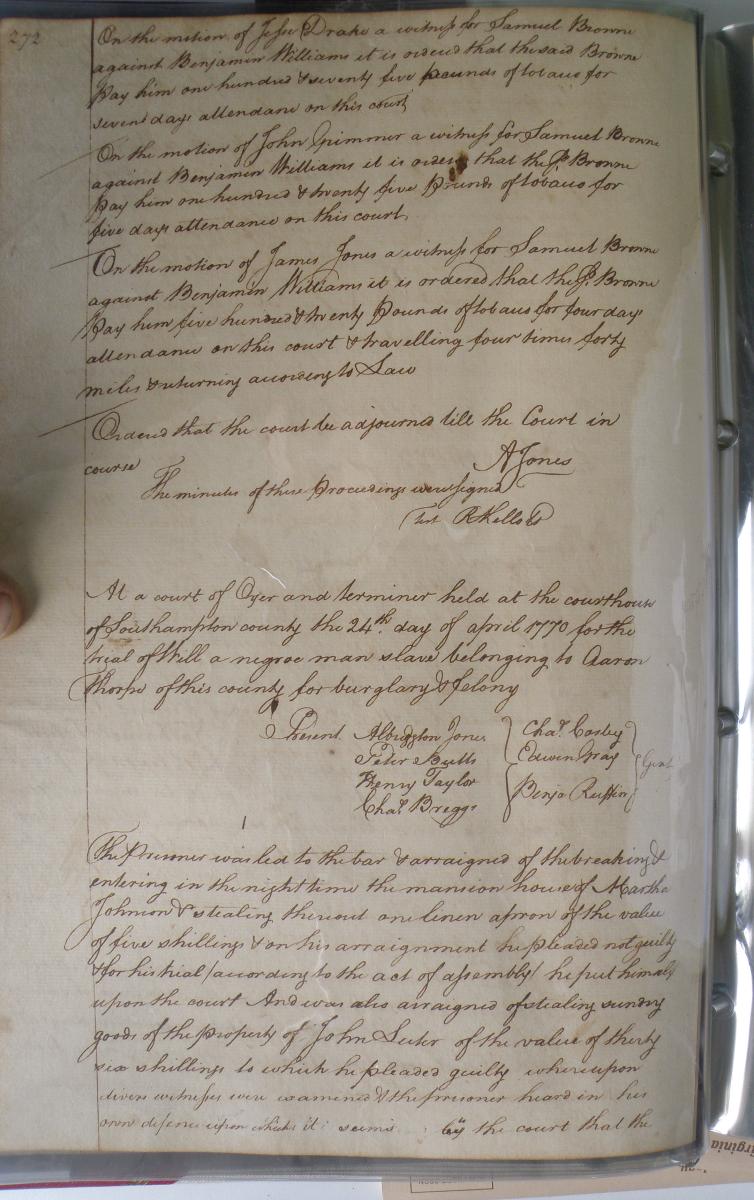 272
On the motion of Jesse Drake a witness for Samuel Browne
against Benjamin Williams it is ordered that the said Browne
Pay him one hundred & seventy five pounds of tobacco for
seven days attendance on this court
On the motion of John a witness for Samuel Browne
against Benjamin Williams it is order that the Sd. Browne
Pay him one hundred & twenty five Pounds of tobacco for
five days attendance on this court
On the motion of James Jones a witness for Samuel Browne
against Benjamin Williams it is ordered that the Sd. Browne
Pay him five hundred & twenty Pounds of tobacco for four days
attendance on this court & travelling four times forty
miles & returning according to Law
Ordered that the court be adjourned till the Court in
course
A Jones
The minutes of these Proceedings were signed
Test R Kello
At a court of Oyer and terminer held at the courthouse
of Southampton county the 24th. day of april 1770 for the
trial of Will a negroe man slave belonging to Aaron
Thorpe of this county for burglary & felony
Present Albrigston Jones
Peter Butts
Henry Taylor
Chas. Breggs
Chas. Cosby
Edwin Gray
Benja Ruffin
Gent
The Prisoner was led to the bar & arraigned of the breaking &
entering in the night time the mansion house of Martha
Johnson & stealing thereout one linen apron of the value
of five shillings & on his arraignment he pleaded not guilty
& for his trial (according to the act of assembly) he put himself
upon the court And was also arraigned of stealing sundry
goods of the property of John Suter of the value of thirty
six shillings to which he pleaded guilty whereupon
divers witnesses were examined & the prisoner heard in his
own defence upon which it seems by the court that the
irginia